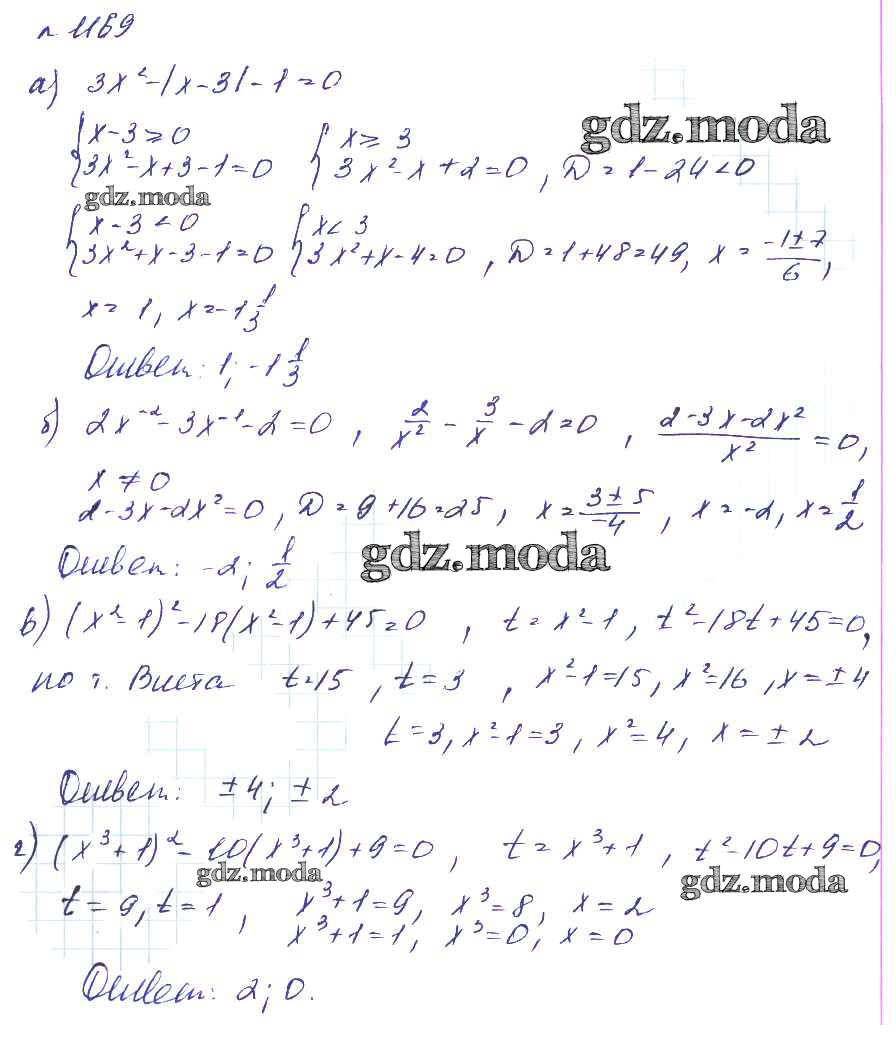 п 1169
а) 3x² - |x - 3| - 1 = 0
{ x - 3 ≥ 0 { x ≥ 3
{ 3x² - x + 3 - 1 = 0 { 3x² - x + 2 = 0 , D = 1 - 24 < 0
gdz.moda
gdz.moda
{ x - 3 < 0 { x < 3
{ 3x² + x - 3 - 1 = 0 { 3x² + x - 4 = 0 , D = 1 + 48 = 49, x = (-1 ± 7)/6 ,
x = 1, x = -1 1/3
Ответ: 1; -1 1/3
б) 2x⁻² - 3x⁻¹ - 2 = 0 , 2/x² - 3/x - 2 = 0 , (2 - 3x - 2x²)/x² = 0,
x ≠ 0
2 - 3x - 2x² = 0 , D = 9 + 16 = 25 , x = (3 ± 5)/-4 , x = -2, x = 1/2
Ответ: -2; 1/2
gdz.moda
в) (x² - 1)² - 18(x² - 1) + 45 = 0 , t = x² - 1 , t² - 18t + 45 = 0,
по т. Виета t = 15 , t = 3 , x² - 1 = 15, x² = 16 , x = ± 4
t = 3, x² - 1 = 3 , x² = 4, x = ± 2
Ответ: ± 4; ± 2
г) (x³ + 1)² - 10(x³ + 1) + 9 = 0 , t = x³ + 1 , t² - 10t + 9 = 0,
gdz.moda
gdz.moda
t = 9, t = 1 , x³ + 1 = 9, x³ = 8, x = 2
x³ + 1 = 1, x³ = 0, x = 0
Ответ: 2; 0.